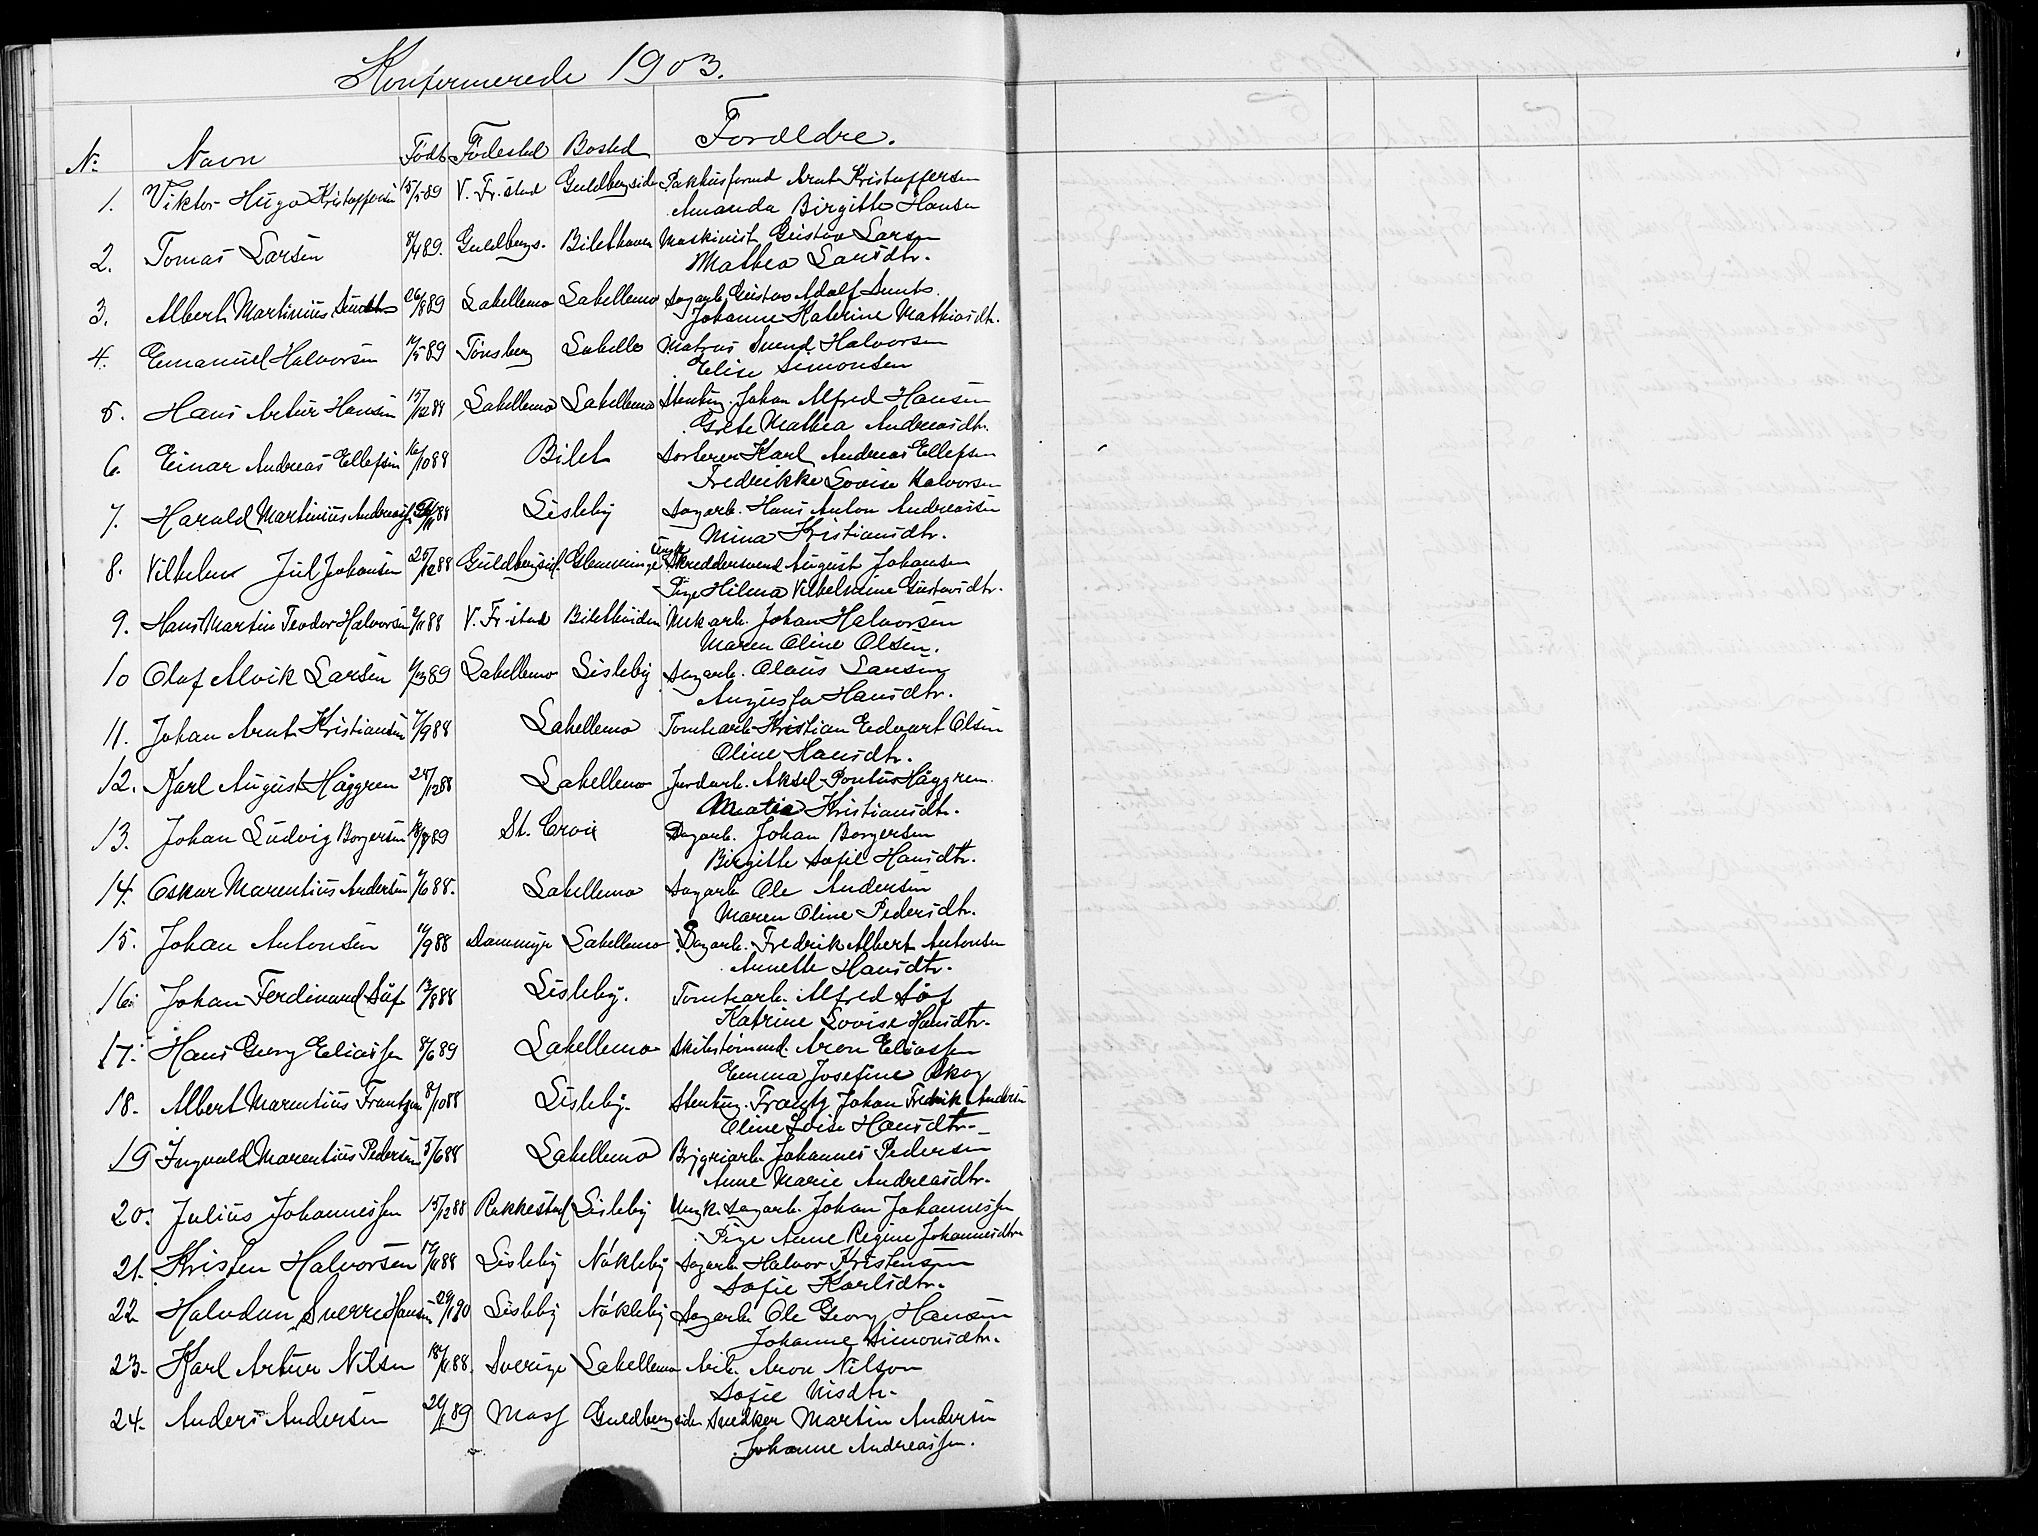 Konfermerede 1903.
No. Navn Födt Födested Bosted Foreldre.
1. Viktor Hugo Kristoffersen 15/5 89 V. Fr.stad Guldbergsiden Pakhusformd Arnt Kristoffersen
Amanda Birgitte Hansen
2. Tomas Larsen 89. Guldbergs. Bilethaven Maskinist Gustav Larsen
Mathea Larsdtr.
3. Albert Martinius 26/8 89 Lahellemo Lahellemo Sagarb. Gustav Adolf
Johanne Katerine Mathiasdtr.
4. Emanuel Halvorsen 89 Tönsberg Lahelle Matros Svend Halvorsen
Elise Simonsen
5. Hans Artur Hansen 15/12 88 Lahellemo Lahellemo Stenhug. Johan Alfred Hansen
Grete Mathea Andreasdtr.
6. Einar Andreas Ellefsen 16/10 88 Bilet Sorterer Karl Andreas Ellefsen
Fredrikke Lovise Halvorsen
7. Harald Martinius Andreassen 88 Lisleby Sagarb. Hans Anton Andreassen
Mina Kristiansdtr.
8. Vilhelm Jul Johansen 25/12 88 Guldbergsid. Glemminge Ungk. Skreddersvend August Johansen
Pige Hilma Vilhelmine Gustavsdtr.
9. Hans Martin Teodor Halvorsen 2/11 88 V. Fr-stad Bilethuiden Mek arb. Johan Halvorsen
Maren Oline Olsen.
10 Olaf Alvik Larsen 89 Lahellemo Lisleby Sagarb. Olaus Larsen
Augusta Hansdtr.
11. Johan Arnt Kristiansen 7/9 88 Lahellemo Tomtearb. Kristian Edvart Olsen
Oline Hansdtr.
12. Karl August Häggren 28/12 88 Lahellemo Jordarb. Aksel Pontus Häggren.
Matea Kristiansdtr.
13. Johan Ludvig Borgersen 89 St. Croix Dagarb. Johan Borgersen
Birgitte Sofie Hansdtr.
14. Oskar Marentius Andersen 88. Lahellemo Sagarb. Ole Andersen
Maren Oline Pedersdtr.
15. Johan Antonsen 19/9 88 Dammyr Lahellemo Dagarb. Fredrik Albert Antonsen
Annette Hansdtr.
16. Johan Ferdinand Säf 13/8 88 Lisleby. Tomtearb. Alfred Säf
Katrine Lovise Hansdtr.
17. Hans Georg Eliassen 8/6 89 Lahellemo Skibstömmd. Aron Eliassen
Emma Josefine Skog
18. Albert Marentius Frantzen 8/10 88 Lisleby. Stenhug. Frantz Johan Fredrik Andersen
Oline Lovise Hansdtr.
19 Ingvald Marentius Pedersen 5/6 88 Lahellemo Bryggriarb. Johannes Pedersen
Anne Marie Andreasdtr.
20. Julius Johannessen 15/12 88 Rakkestad Lisleby Ungk. Sagarb. Johan Johannessen
Pige Anne Regine Johannesdtr.
21. Kristen Halvorsen 88 Lisleby Nökleby Sagarb. Halvor Kristensen
Sofie Karlsdtr.
22 Halvdan Sverre Hansen 29/1 90 Lisleby Nökleby Sagarb. Ole Georg Hansen
Johanne Simonsdtr.
23. Karl Artur Nilsen 18/11 88. Sverige Lahellemo Arb. Aron Nilson
Sofie Nisdtr.
24. Anders Andersen 89 Moss Guldbergsiden Snedker Martin Andersen
Johanne Andreassen.